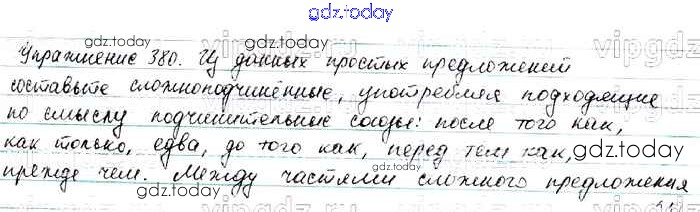 gdz.today
Упражнение 380. Из данных простых предложений
составьте сложноподчинённые, употребляя подходящие
по смыслу подчинительные союзы: после того как,
как только, едва, до того как, перед тем как,
прежде чем. Между частями сложного предложения